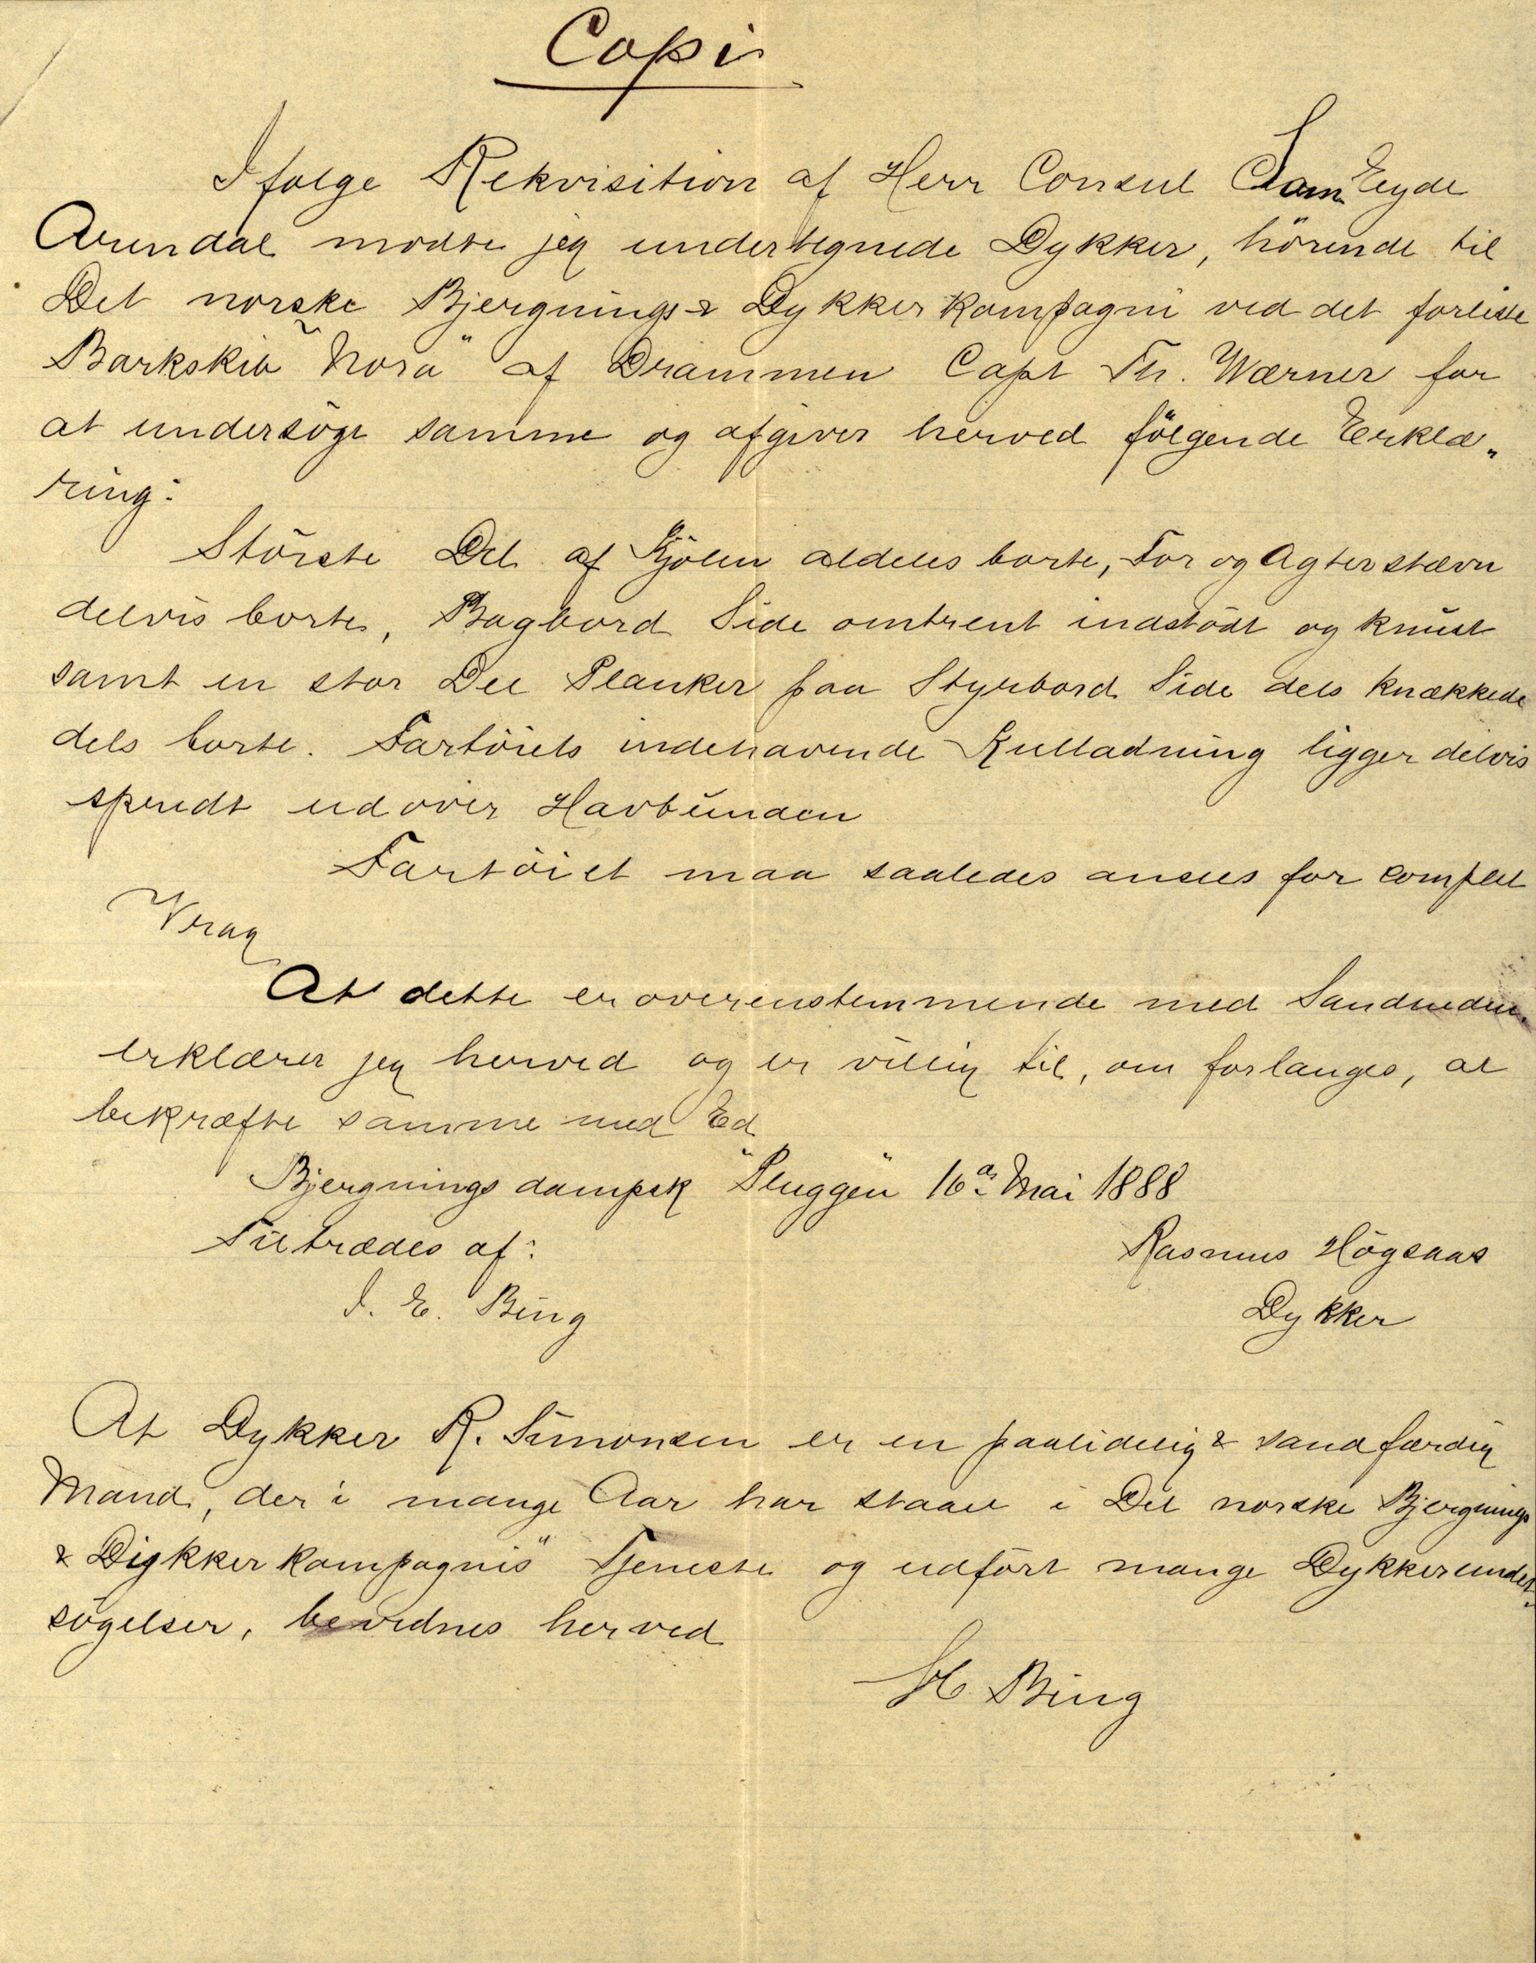 Copi
Ifølge Rekvisition af Herr Consul Sam Eyde
Arendal mødte jeg undertegnede Dykker, hörende til
Det norske Bjergnings & Dykkerkompagni ved det forliste
Barkskib "Nora" af Drammen Capt Th. Wærner for
at undersöge samme og afgiver herved fölgende Erklæ„
ring:
Störste Del af Kjölen aldeles borte, For og Agterstævn
delvis borte, Bagbord Side omtrent indstödt og knust
samt en stor Del Planker paa Styrbord Side dels knækkede
dels borte. Fartöiets indehavende Kulladning ligger delvis
spredt udover Havbunden
Fartöiet maa saaledes ansees for complet
Vrag
At dette er overenstemmende med Sandheden
erklærer jeg herved og er villig til, om forlanges, at
bekræfte samme med Ed
Bjergningsdampsk "Pluggen" 16de Mai 1888
Tiltrædes af:
Rasmus Högsaas
I. E. Bing
Dykker
At Dykker R. Simonsen er en paalidelig & sandfærdig
Mand, der i mange Aar har staaet i Det norske Bjergnings
& Dykkerkompagnis" Tjeneste og udfört mange Dykkerunder-
sögelser, bevidnes herved
H Bing